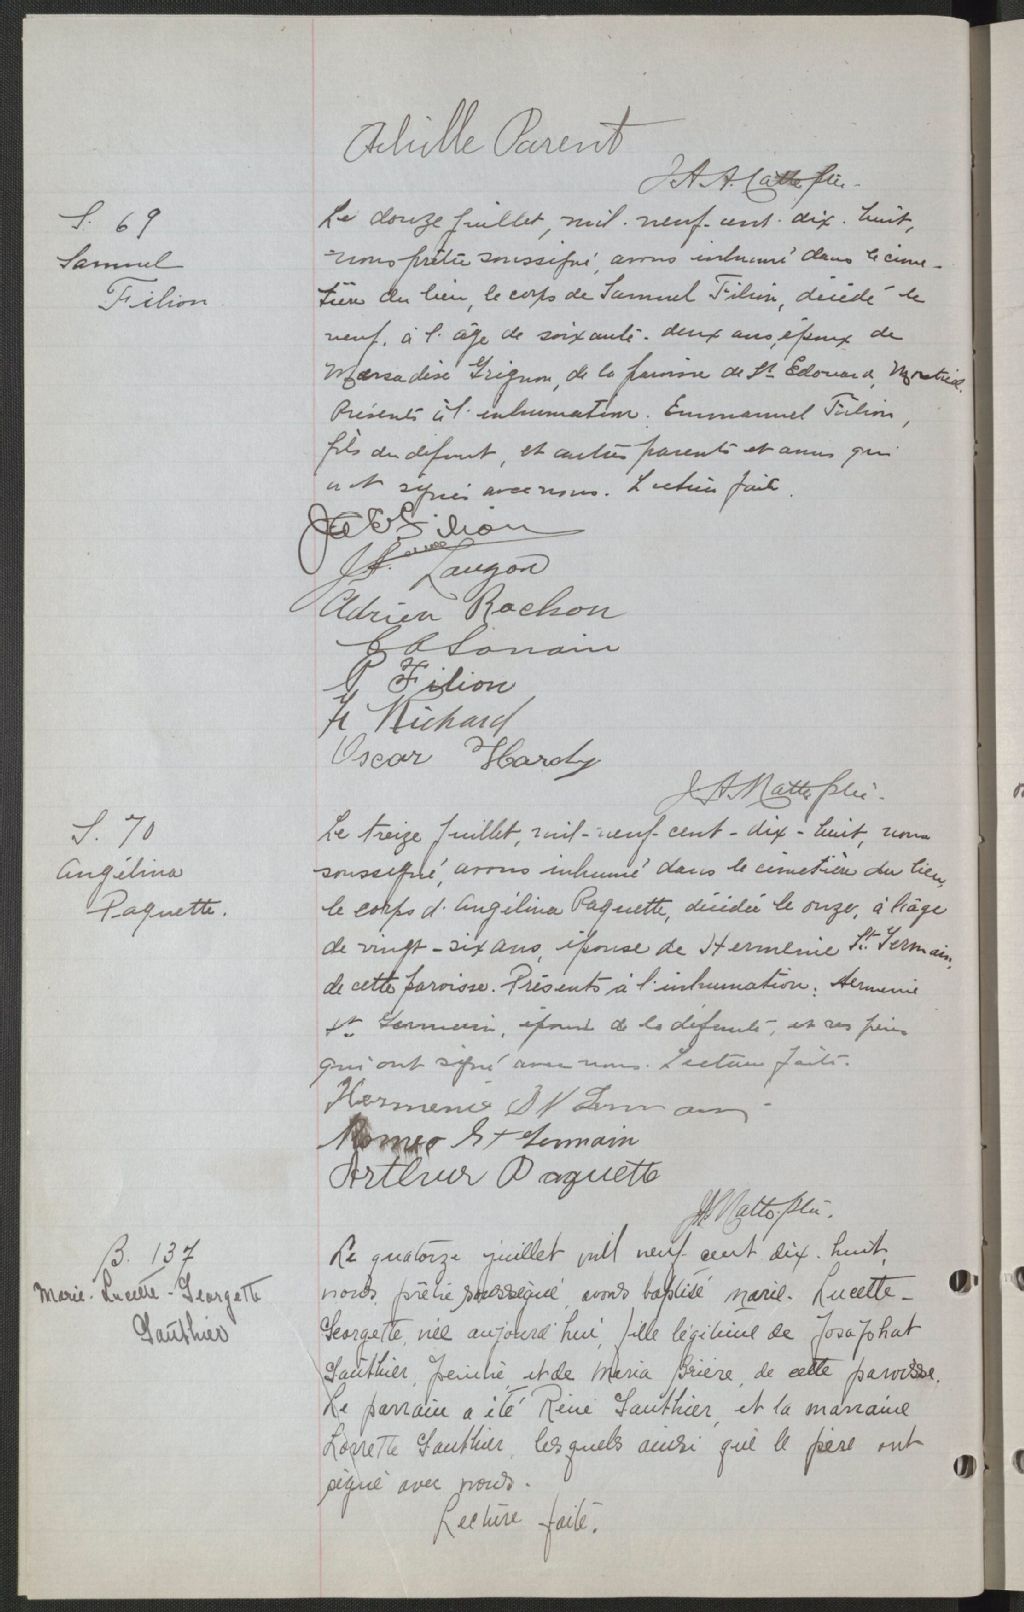 Achille Parent
J.A.A. Matte ptre.
S. 69
Samuel
Filion
Le douze juillet, mil-neuf-cent-dix-huit,
nous prêtre soussigné, avons inhumé dans le cime-
tière du lieu, le corps de Samuel Filion, décédé le
neuf, à l'âge de soixante-deux ans, époux de
Grignon, de la paroisse de St Edouard, Montréal.
Présents à l'inhumation: Emmanuel Filion,
fils du défunt, et autres parents et amis qui
ont signé avec nous. Lecture faite.
Filion
Lauzon
Adrien Rochon
P Filion
H Richard
Oscar Hardy
J A Matte ptre.
S. 70
Angélina
Paquette.
Le treize juillet, mil-neuf-cent-dix-huit, nous
soussigné, avons inhumé dans le cimetière du lieu,
le corps d'Angélina Paquette, décédée le onze, à l'âge
de vingt-six ans, épouse de Herménie St. Germain,
de cette paroisse. Présents à l'inhumation: Hermenie
St Germain, époux de la défunte, et ses
qui ont signé avec nous. Lecture faite.
Hermenie St Germain
Romeo St Germain
Arthur Paquette
J A Matte ptre.
B. 137
Marie-Lucette-Georgette
Gauthier
Le quatorze juillet mil neuf cent dix-huit,
nous, prêtre soussigné, avons baptisé Marie-Lucette-
Georgette, née aujourd'hui, fille légitime de Josaphat
Gauthier, peintre et de Maria Brière, de cette paroisse.
Le parrain a été Réné Gauthier, et la marraine
Lorrette Gauthier, lesquels ainsi que le père ont
signé avec nous.
Lecture faite.